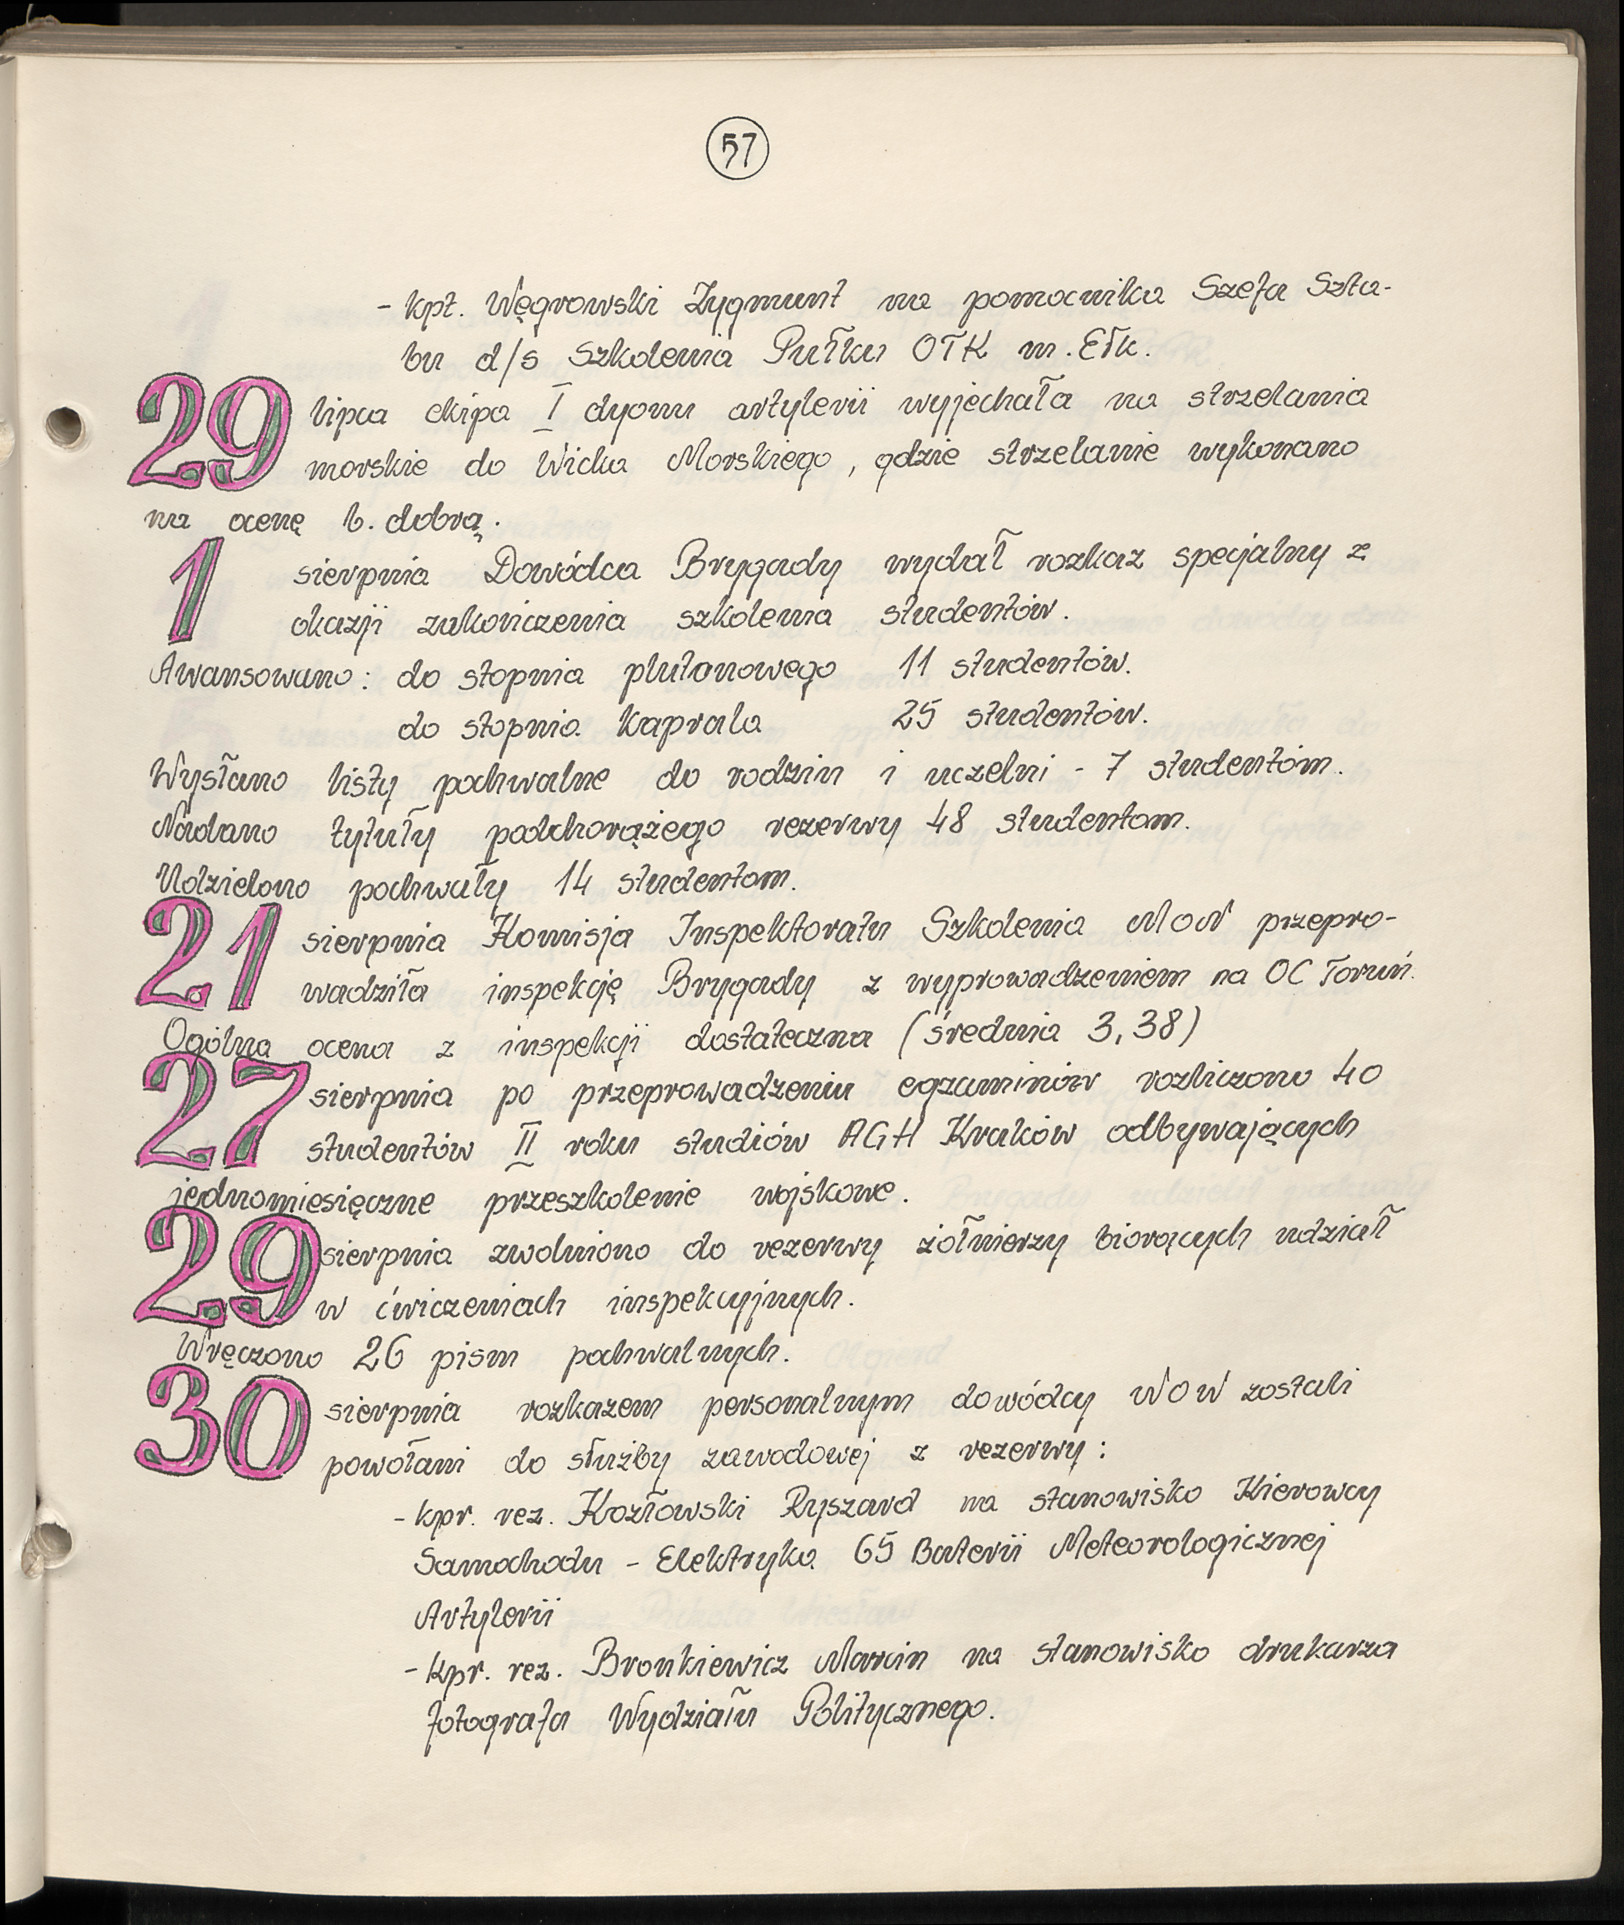 57
- kpt. Węgrowski Zygmunt na pomocnika Szefa Szta-
bu d/s Szkolenia Pułku OTK m. Ełk.
29 lipca ekipa I dyonu artylerii wyjechała na strzelania
morskie do Wicka Morskiego, gdzie strzelanie wykonano
na ocenę b. dobrą.
1 sierpnia Dowódca Brygady wydał rozkaz specjalny z
okazji zakończenia szkolenia studentów.
Awansowano: do stopnia plutonowego 11 studentów.
do stopnia kaprala 25 studentów.
Wysłano listy pochwalne do rodzin i uczelni - 7 studentóm.
Nadano tytuły podchorążego rezerwy 48 studentom.
Udzielono pochwały 14 studentom.
21 sierpnia Komisja Inspektoratu Szkolenia MON przepro-
wadziła inspekcję Brygady z wyprowadzeniem na OC Toruń.
Ogólna ocena z inspekcji dostateczna (średnia 3,38)
27 sierpnia po przeprowadzeniu egzaminów rozliczono 40
studentów II roku studiów AGH Kraków odbywających
jednomiesięczne przeszkolenie wojskowe.
29 sierpnia zwolniono do rezerwy żołnierzy biorących udział
w ćwiczeniach inspekcyjnych.
Wręczono 26 pism pochwalnych.
30 sierpnia rozkazem personalnym dowódcy WOW zostali
powołani do służby zawodowej z rezerwy:
- kpr. rez. Kozłowski Ryszard na stanowisko Kierowcy
Samochodu - Elektryka 65 Baterii Meteorologicznej
Artylerii
- kpr. rez. Bronkiewicz Marcin na stanowisko drukarza
fotografa Wydziału Politycznego.